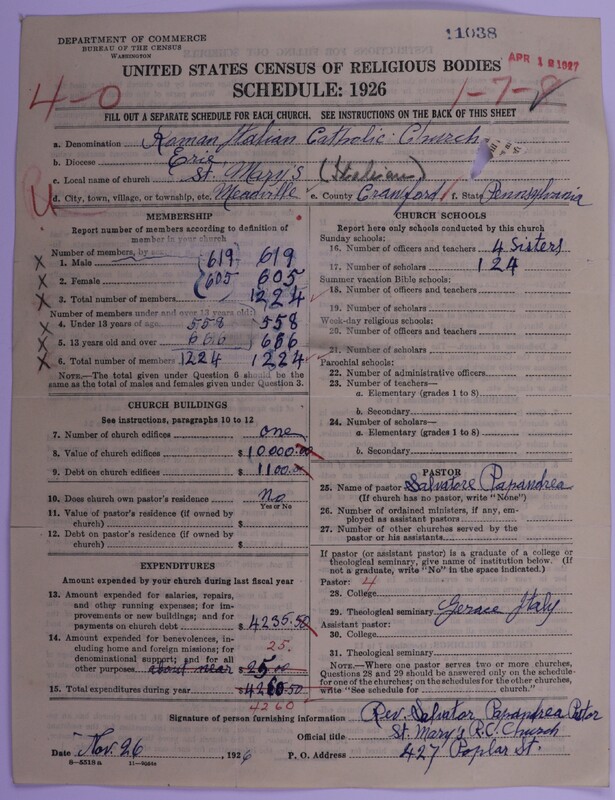 DEPARTMENT OF COMMERCE
BUREAU OF THE CENSUS
WASHINGTON
11038
APR 18 1927
UNITED STATES CENSUS OF RELIGIOUS BODIES
SCHEDULE: 1926
4-0
1-7-8
FILL OUT A SEPARATE SCHEDULE FOR EACH CHURCH. SEE INSTRUCTIONS ON THE BACK OF THIS SHEET
a. Denomination Roman Italian Catholic Church
b. Diocese Erie
c. Local name of church St. Mary's (Italian)
d. City, town, village, or township, etc. Meadville e. County Crawford f. State Pennsylvania
MEMBERSHIP
Report number of members according to definition of
member in your church
Number of members, by sex:
1. Male 619 619
2. Female 605 605
3. Total number of members 1224
Number of members under and over 13 years old:
4. Under 13 years of age 558 558
5. 13 years old and over 666 666
6. Total number of members 1224 1224
NOTE.—The total given under Question 6 should be
the same as the total of males and females given under Question 3.
CHURCH BUILDINGS
See instructions, paragraphs 10 to 12
7. Number of church edifices one
8. Value of church edifices $ 10000.00
9. Debt on church edifices $ 1100.
10. Does church own pastor's residence No
Yes or No
11. Value of pastor's residence (if owned by
church) $
12. Debt on pastor's residence (if owned by
church) $
EXPENDITURES
Amount expended by your church during last fiscal year
13. Amount expended for salaries, repairs,
and other running expenses; for im-
provements or new buildings; and for
payments on church debt $ 4235.50
14. Amount expended for benevolences,
including home and foreign missions; for
denominational support; and for all
other purposes $ 25.00
25.
15. Total expenditures during year $ 4260.50
4260
CHURCH SCHOOLS
Report here only schools conducted by this church
Sunday schools:
16. Number of officers and teachers 4 Sisters
17. Number of scholars 124
Summer vacation Bible schools:
18. Number of officers and teachers
19. Number of scholars
Week-day religious schools:
20. Number of officers and teachers
21. Number of scholars
Parochial schools:
22. Number of administrative officers
23. Number of teachers—
a. Elementary (grades 1 to 8)
b. Secondary
24. Number of scholars—
a. Elementary (grades 1 to 8)
b. Secondary
PASTOR
25. Name of pastor Salvatore Papandrea
(If church has no pastor, write "None")
26. Number of ordained ministers, if any, em-
ployed as assistant pastors
27. Number of other churches served by the
pastor or his assistants
If pastor (or assistant pastor) is a graduate of a college or
theological seminary, give name of institution below. (If
not a graduate, write "No" in the space indicated.)
Pastor: 4
28. College
29. Theological seminary Gerace Italy
Assistant pastor:
30. College
31. Theological seminary
NOTE.—Where one pastor serves two or more churches,
Questions 28 and 29 should be answered only on the schedule
for one of the churches; on the schedules for the other churches,
write "See schedule for church."
Signature of person furnishing information Rev. Salvator Papandrea Pastor
Official title St. Mary's R.C. Church
Date Nov. 26, 1926 P. O. Address 427 Poplar St.
8—5518a 11—